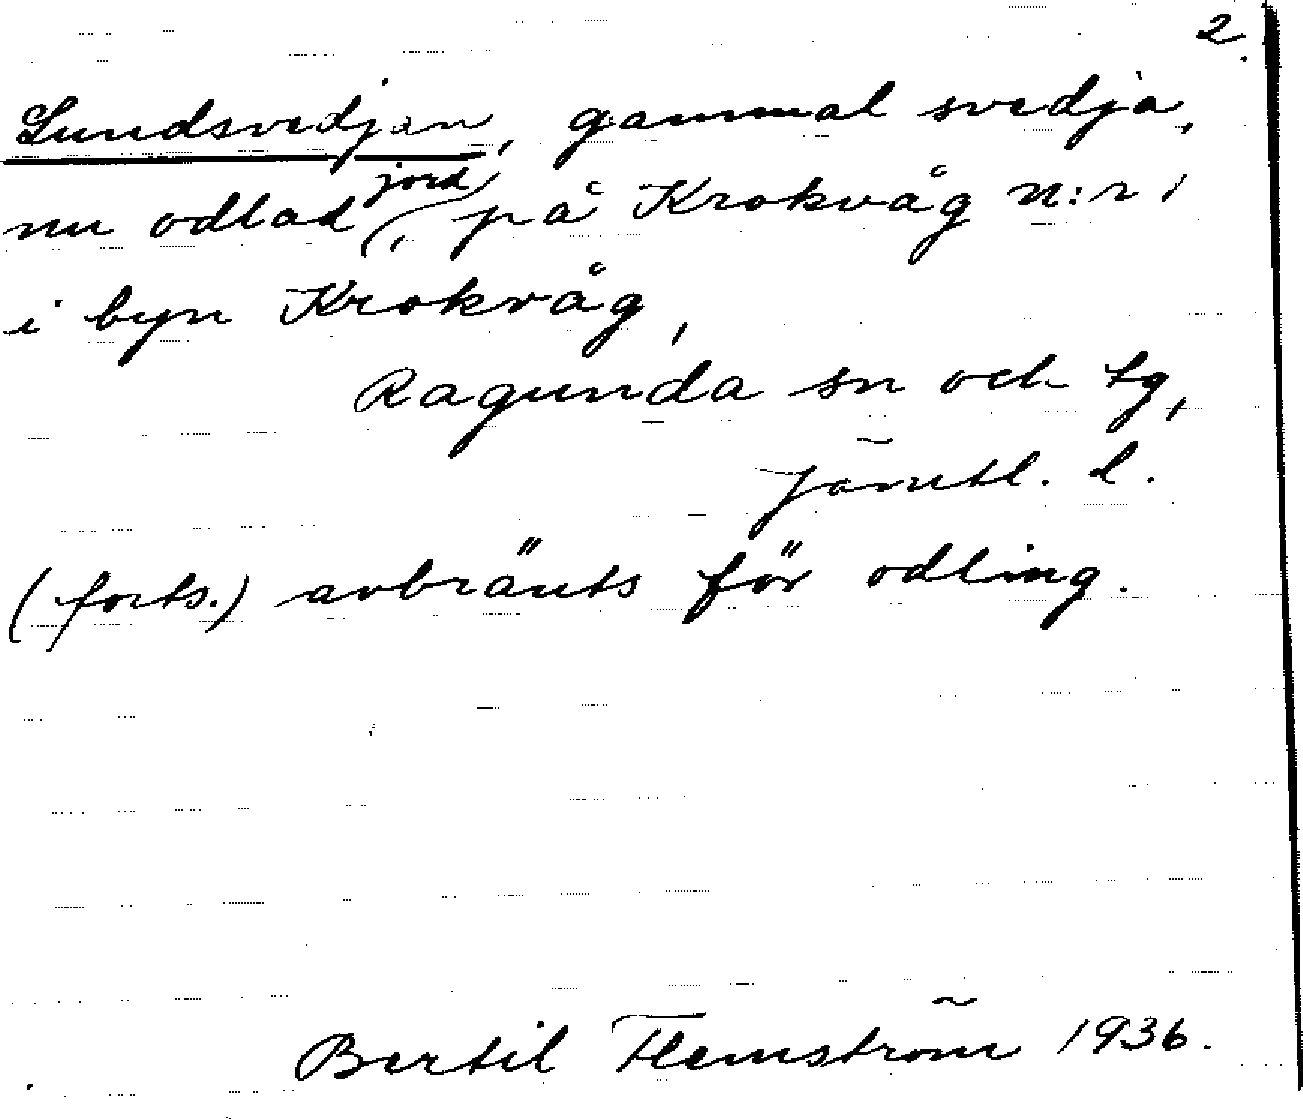 2.
Lundsvedjan, gammal svedja,
nu odlad jord, på Krokvåg n:r 1
i byn Krokvåg,
Ragunda sn och tg,
Jämtl. l.
(forts.) avbränts för odling.
Bertil Flemström 1936.